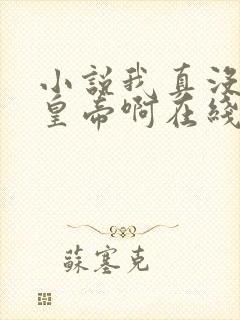 小説我真没
皇帝啊在綫
蘇塞克